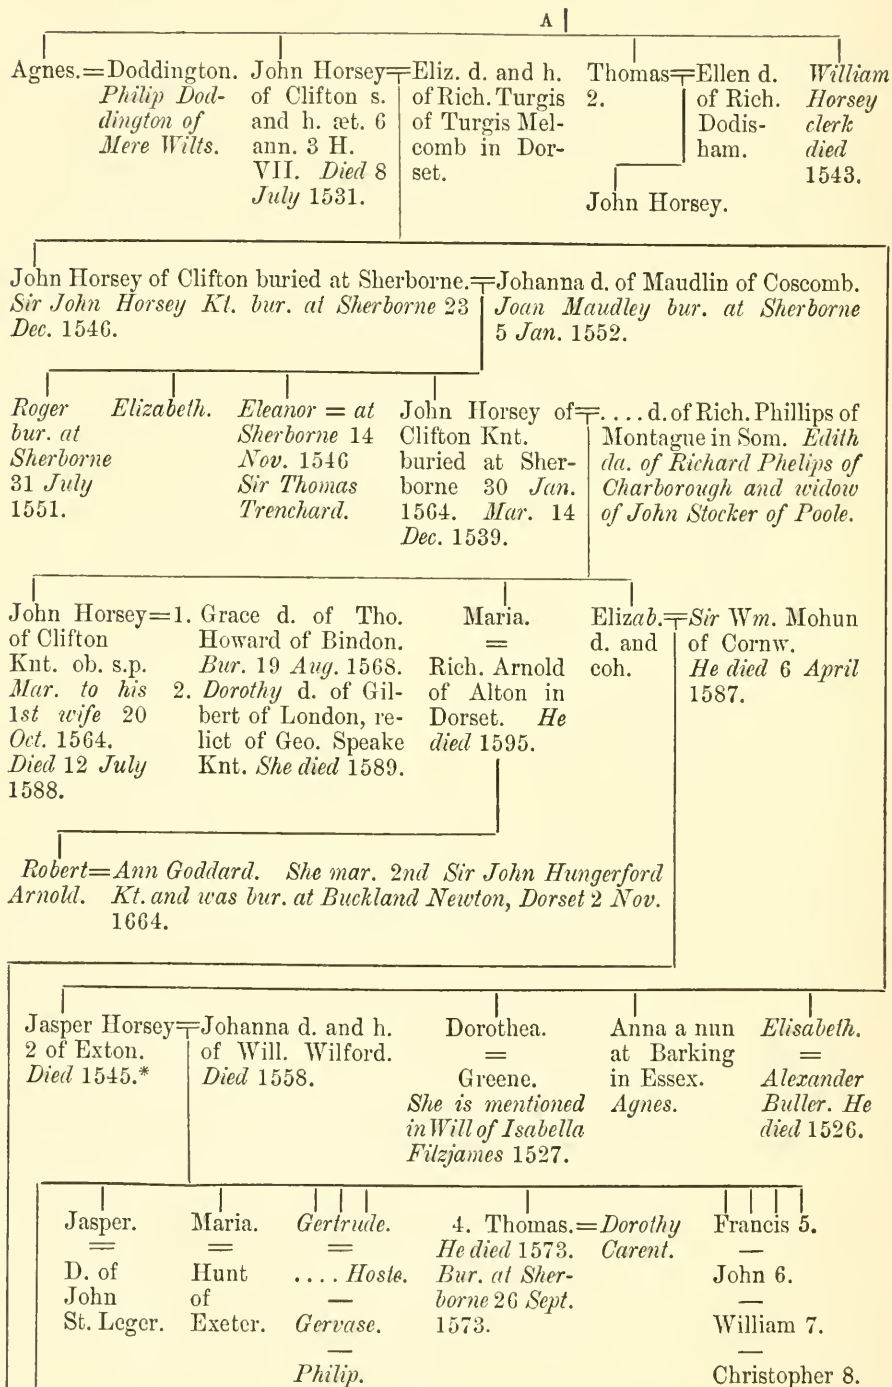 A
Agnes.=Doddington.
Philip Dod-
dington of
Mere Wilts.
John Horsey=
of Clifton s.
and h. æt. 6
ann. 3 H.
VII. Died 8
July 1531.
Eliz. d. and h.
of Rich. Turgis
of Turgis Mel-
comb in Dor-
set.
Thomas=
2.
Ellen d.
of Rich.
Dodis-
ham.
William
Horsey
clerk
died
1543.
John Horsey.
John Horsey of Clifton buried at Sherborne.=
Sir John Horsey Kt. bur. at Sherborne 23
Dec. 1546.
Johanna d. of Maudlin of Coscomb.
Joan Maudley bur. at Sherborne
5 Jan. 1552.
Roger
bur. at
Sherborne
31 July
1551.
Elizabeth.
Eleanor = at
Sherborne 14
Nov. 1546
Sir Thomas
Trenchard.
John Horsey of=
Clifton Knt.
buried at Sher-
borne 30 Jan.
1564. Mar. 14
Dec. 1539.
.... d. of Rich. Phillips of
Montague in Som. Edith
da. of Richard Phelips of
Charborough and widow
of John Stocker of Poole.
John Horsey=
of Clifton
Knt. ob. s.p.
Mar. to his
1st wife 20
Oct. 1564.
Died 12 July
1588.
1. Grace d. of Tho.
Howard of Bindon.
Bur. 19 Aug. 1568.
2. Dorothy d. of Gil-
bert of London, re-
lict of Geo. Speake
Knt. She died 1589.
Maria.
=
Rich. Arnold
of Alton in
Dorset. He
died 1595.
Elizab.=
d. and
coh.
Sir Wm. Mohun
of Cornw.
He died 6 April
1587.
Robert=
Arnold.
Ann Goddard. She mar. 2nd Sir John Hungerford
Kt. and was bur. at Buckland Newton, Dorset 2 Nov.
1664.
Jasper Horsey=
2 of Exton.
Died 1545.*
Johanna d. and h.
of Will. Wilford.
Died 1558.
Dorothea.
=
Greene.
She is mentioned
in Will of Isabella
Filzjames 1527.
Anna a nun
at Barking
in Essex.
Agnes.
Elisabeth.
=
Alexander
Buller. He
died 1526.
Jasper.
=
D. of
John
St. Leger.
Maria.
=
Hunt
of
Exeter.
Gertrude.
=
.... Hoste.
—
Gervase.
—
Philip.
4. Thomas.=
He died 1573.
Bur. at Sher-
borne 26 Sept.
1573.
Dorothy
Carent.
Francis 5.
—
John 6.
—
William 7.
—
Christopher 8.